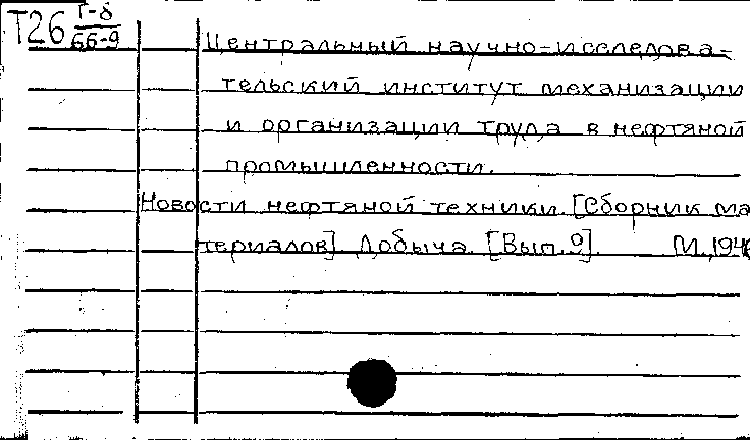 Т26 Г-8
66-9
Центральный научно-исследова-
тельский институт механизации
и организации труда в нефтяной
промышленности.
Новости нефтяной техники. [Сборник ма
териалов]. Добыча. [Вып. 9]. М.,